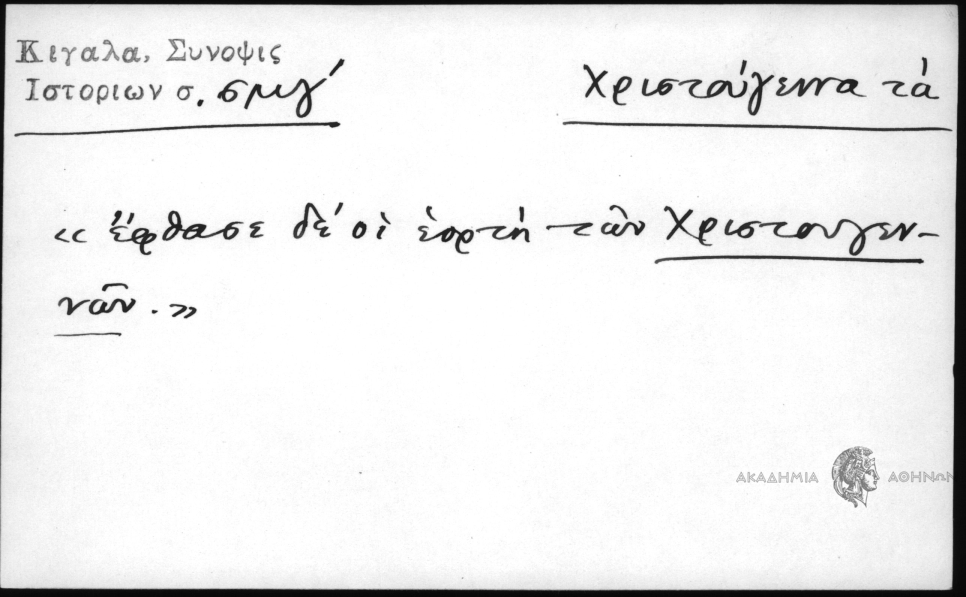 Κιγαλα, Συνοψις
Ιστοριων σ. σμγ́
Χριστούγεννα τὰ
«ἔφθασε δέ οἱ ἑορτὴ τῶν Χριστουγεν-
νῶν.»
ΑΚΑΔΗΜΙΑ ΑΘΗΝΩΝ